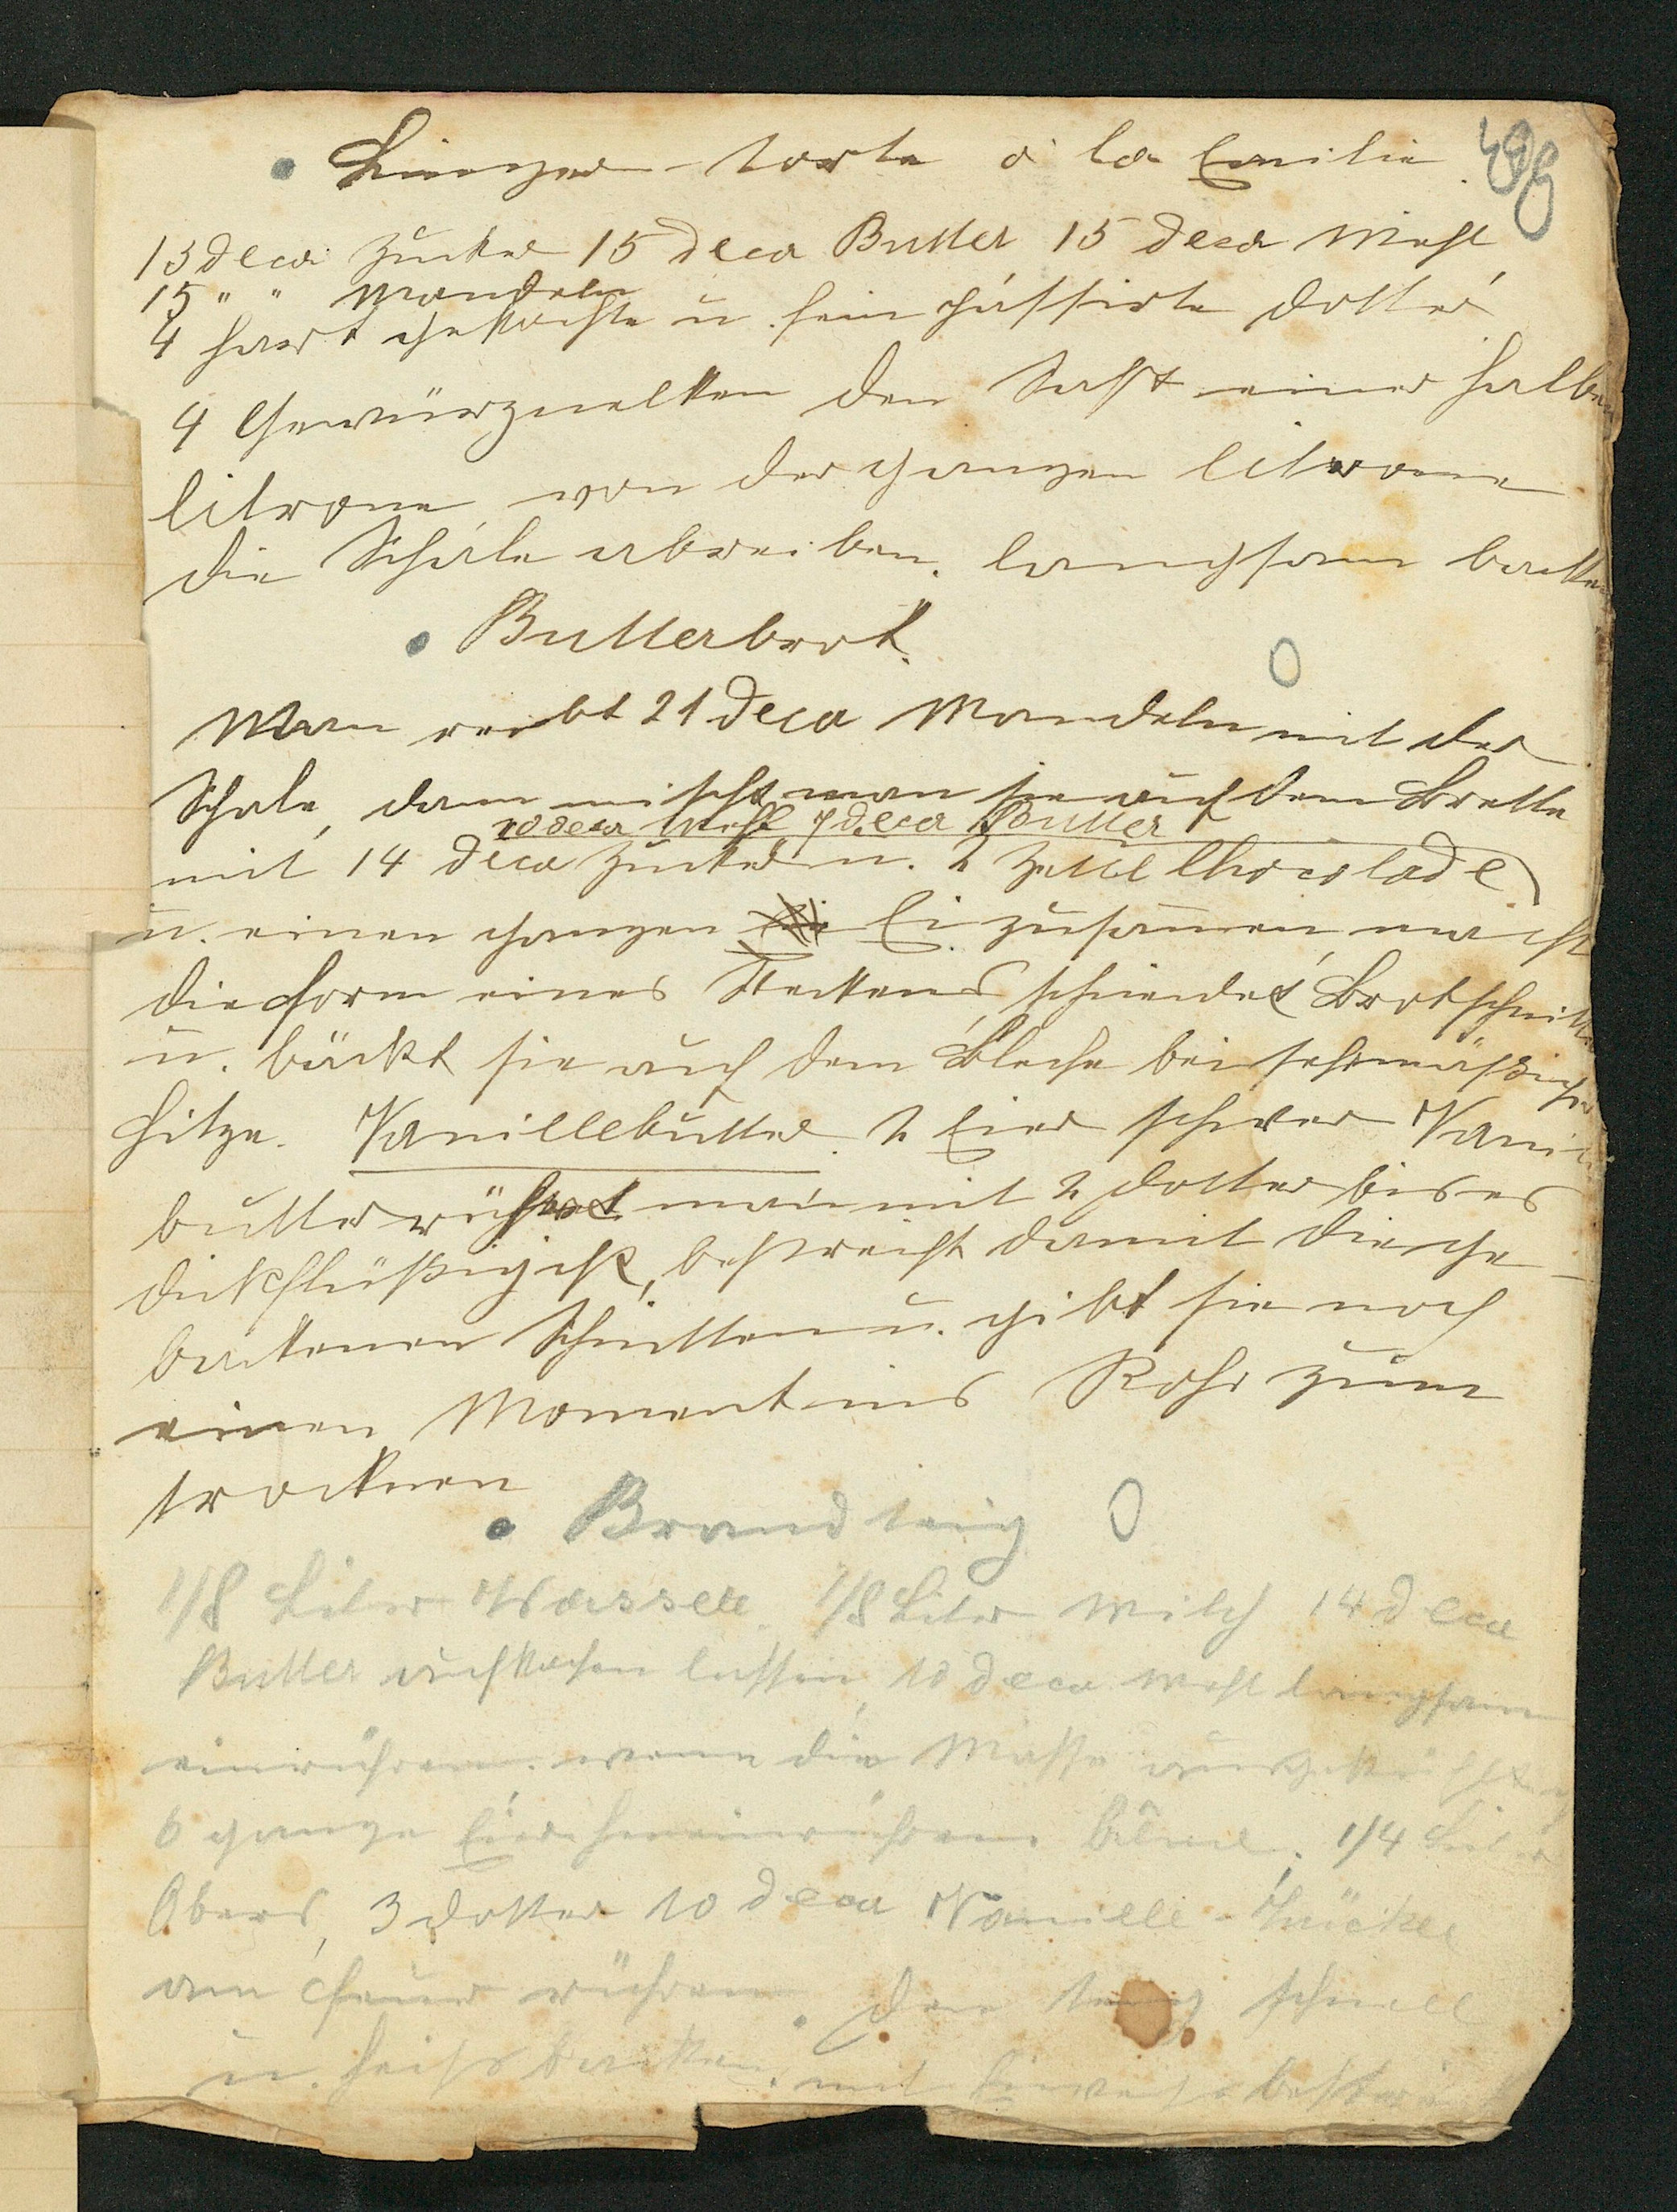 Linzer-torte à la Emilie
15 deca Zucker 15 deca Butter 15 deca Mehl
15 " " Mandeln
4 hart gekochte u. fein passirte Dotter
4 Gewürznelken den Saft einer halben
Citrone von der ganzen Citrone
die Schale abreiben. langsam backen
Butterbrot.
Man reibt 21 deca Mandeln mit der
Schale, dann mischt man sie auf dem Brette
10 deca Mehl 7 deca Butter
mit 14 deca Zucker u. 2 Zettel Chocolade
u. einen ganzen Ei zusam̅en, macht
die Form eines Weckens, schneidet Brotschnitten
u. bäckt sie auf dem Bleche bei sehr mäßiger
Hitze. Vanillebutter. 2 Eier schwer Vanille
butter rührt man mit 2 Dotter bis es
dickflüßig ist, bestreicht damit die ge-
backenen Schnitten u. gibt sie noch
einen Moment ins Rohr zum
trocknen
Brandteig
1/8 Liter Wasser 1/8 Liter Milch 14 deca
Butter aufkochen lassen, 10 deca Mehl langsam
einrühren. wenn die Masse ausgekühlt
6 ganze Eier hineinrühren. Crême. 1/4 Liter
Obers, 3 Dotter 10 deca Vanille-Zucker
am Feuer rühren. den Teig schnell
u. heiss backen. mit